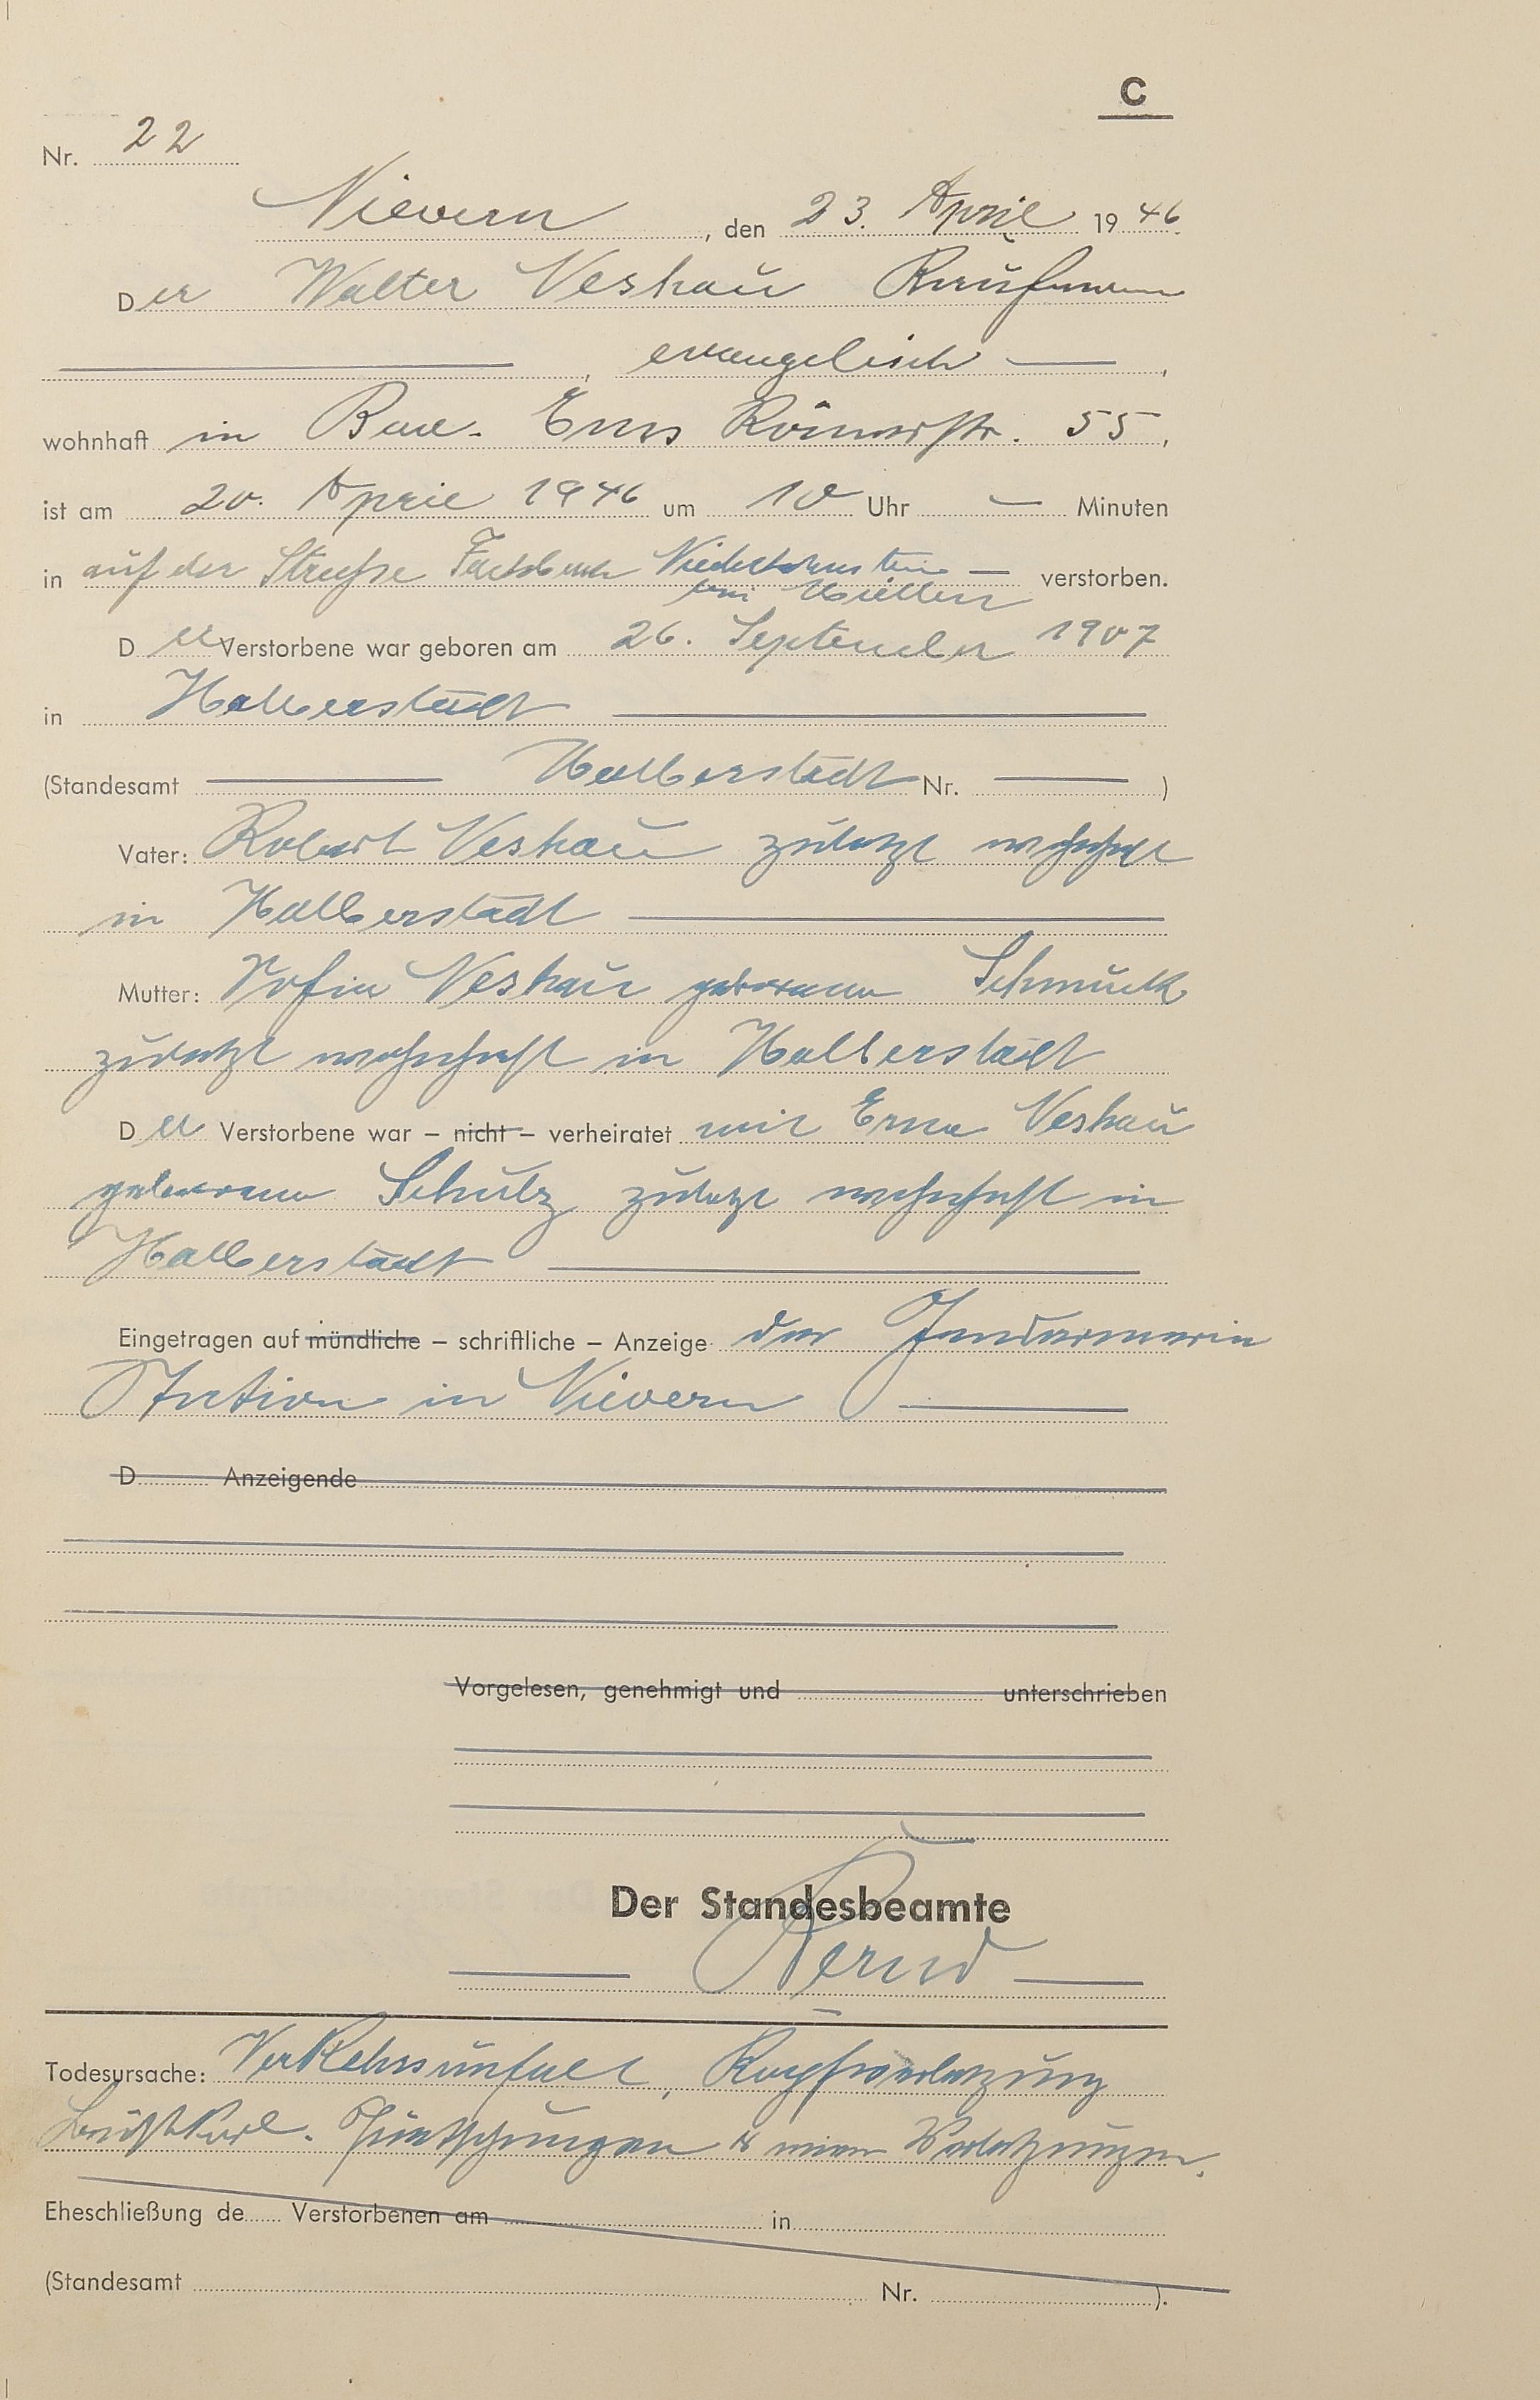 C
Nr. 22
Nievern, den 23. April 1946.
Der Walter Neshau Kaufmann
, evangelisch,
wohnhaft in Bad-Ems Römerstr. 55,
ist am 20. April 1946 um 10 Uhr — Minuten
in auf der Straße Fachbach Niederlahnstein — verstorben.
bei Miellen
Der Verstorbene war geboren am 26. September 1907
in Halberstadt
(Standesamt Halberstadt Nr. )
Vater: Robert Neshau zuletzt wohnhaft
in Halberstadt
Mutter: Sofie Neshau geborene Schmuck
zuletzt wohnhaft in Halberstadt
Der Verstorbene war – nicht – verheiratet mit Erna Neshau
geborene Schulz zuletzt wohnhaft in
Halberstadt
Eingetragen auf mündliche – schriftliche – Anzeige der Gendarmerie
Station in Nievern
D Anzeigende
Vorgelesen, genehmigt und unterschrieben
Der Standesbeamte
Todesursache: Verkehrsunfall, Kopfverletzung
Brustkorb. Quetschungen innere Verletzungen.
Eheschließung de Verstorbenen am in
(Standesamt Nr. ).